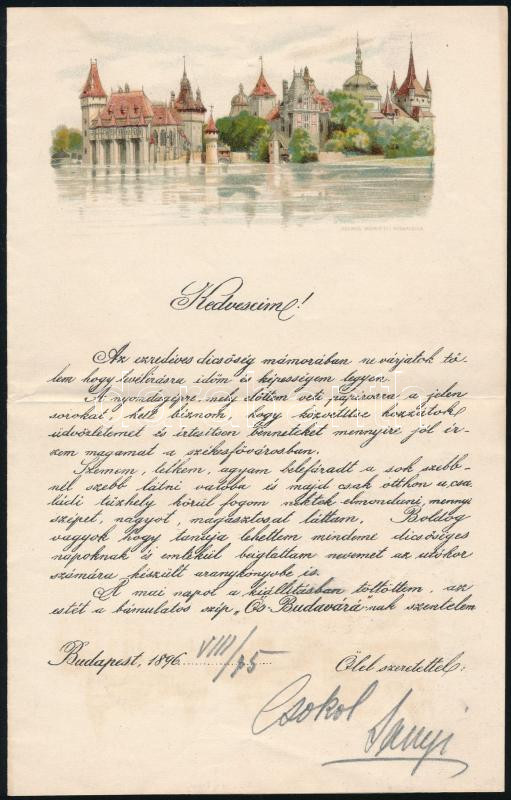 Kedveseim!
Az ezredéves dicsőség mámorában ne várjatok tő-
lem hogy levélirásra időm és képességem legyen.
A nyomdagépre, mely előttem veti papirosra a jelen
sorokat, kell biznom, hogy közvetitse hozzátok
üdvözletemet és értesitsen benneteket mennyire jól ér-
zem magamat a székesfővárosban.
Szemem, lelkem, agyam belefáradt a sok szebb-
nél szebb látni valóba és majd csak otthon a csa-
ládi tűzhely körül fogom nektek elmondani, mennyi
szépet, nagyot, magasztosat láttam. Boldog
vagyok hogy tanuja lehettem mindeme dicsőséges
napoknak és emlékül beigtattam nevemet az utókor
számára készült aranykönyvbe is.
A mai napot a kiállitásban töltöttem, az
estét a bámulatos szép „Ős-Budavárá"-nak szentelem
Budapest, 1896 VIII/15 Ölel szeretettel:
Csokol
Sanyi